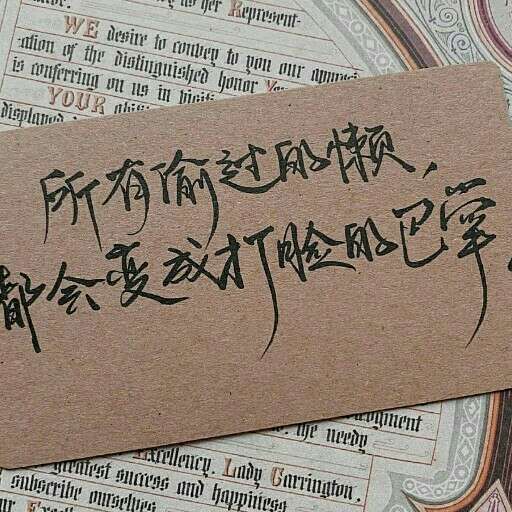 WE desire to convey to you our appreci-
ation of the distinguished honor
is conferring on us in
YOUR
displayed
所有偷过的懒，
都会变成打脸的巴掌。
the needy
Excellency. Lady Carrington.
greatest success and happiness
subscribe ourselves